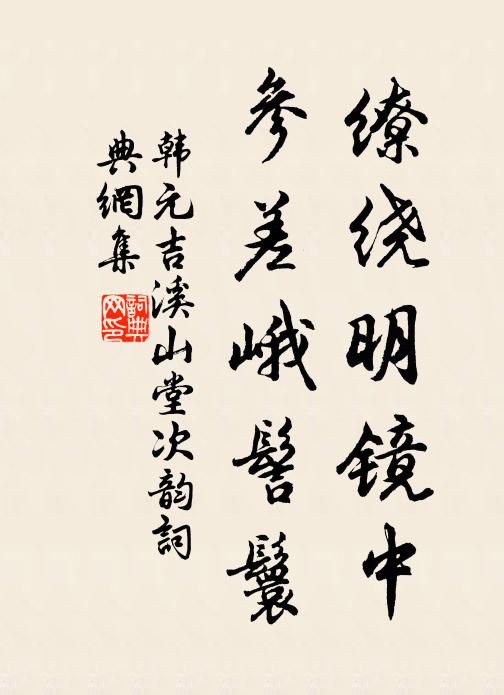 缭绕明镜中
参差峨髻鬟
韩元吉溪山堂次韵詞
典網集
詞典网印